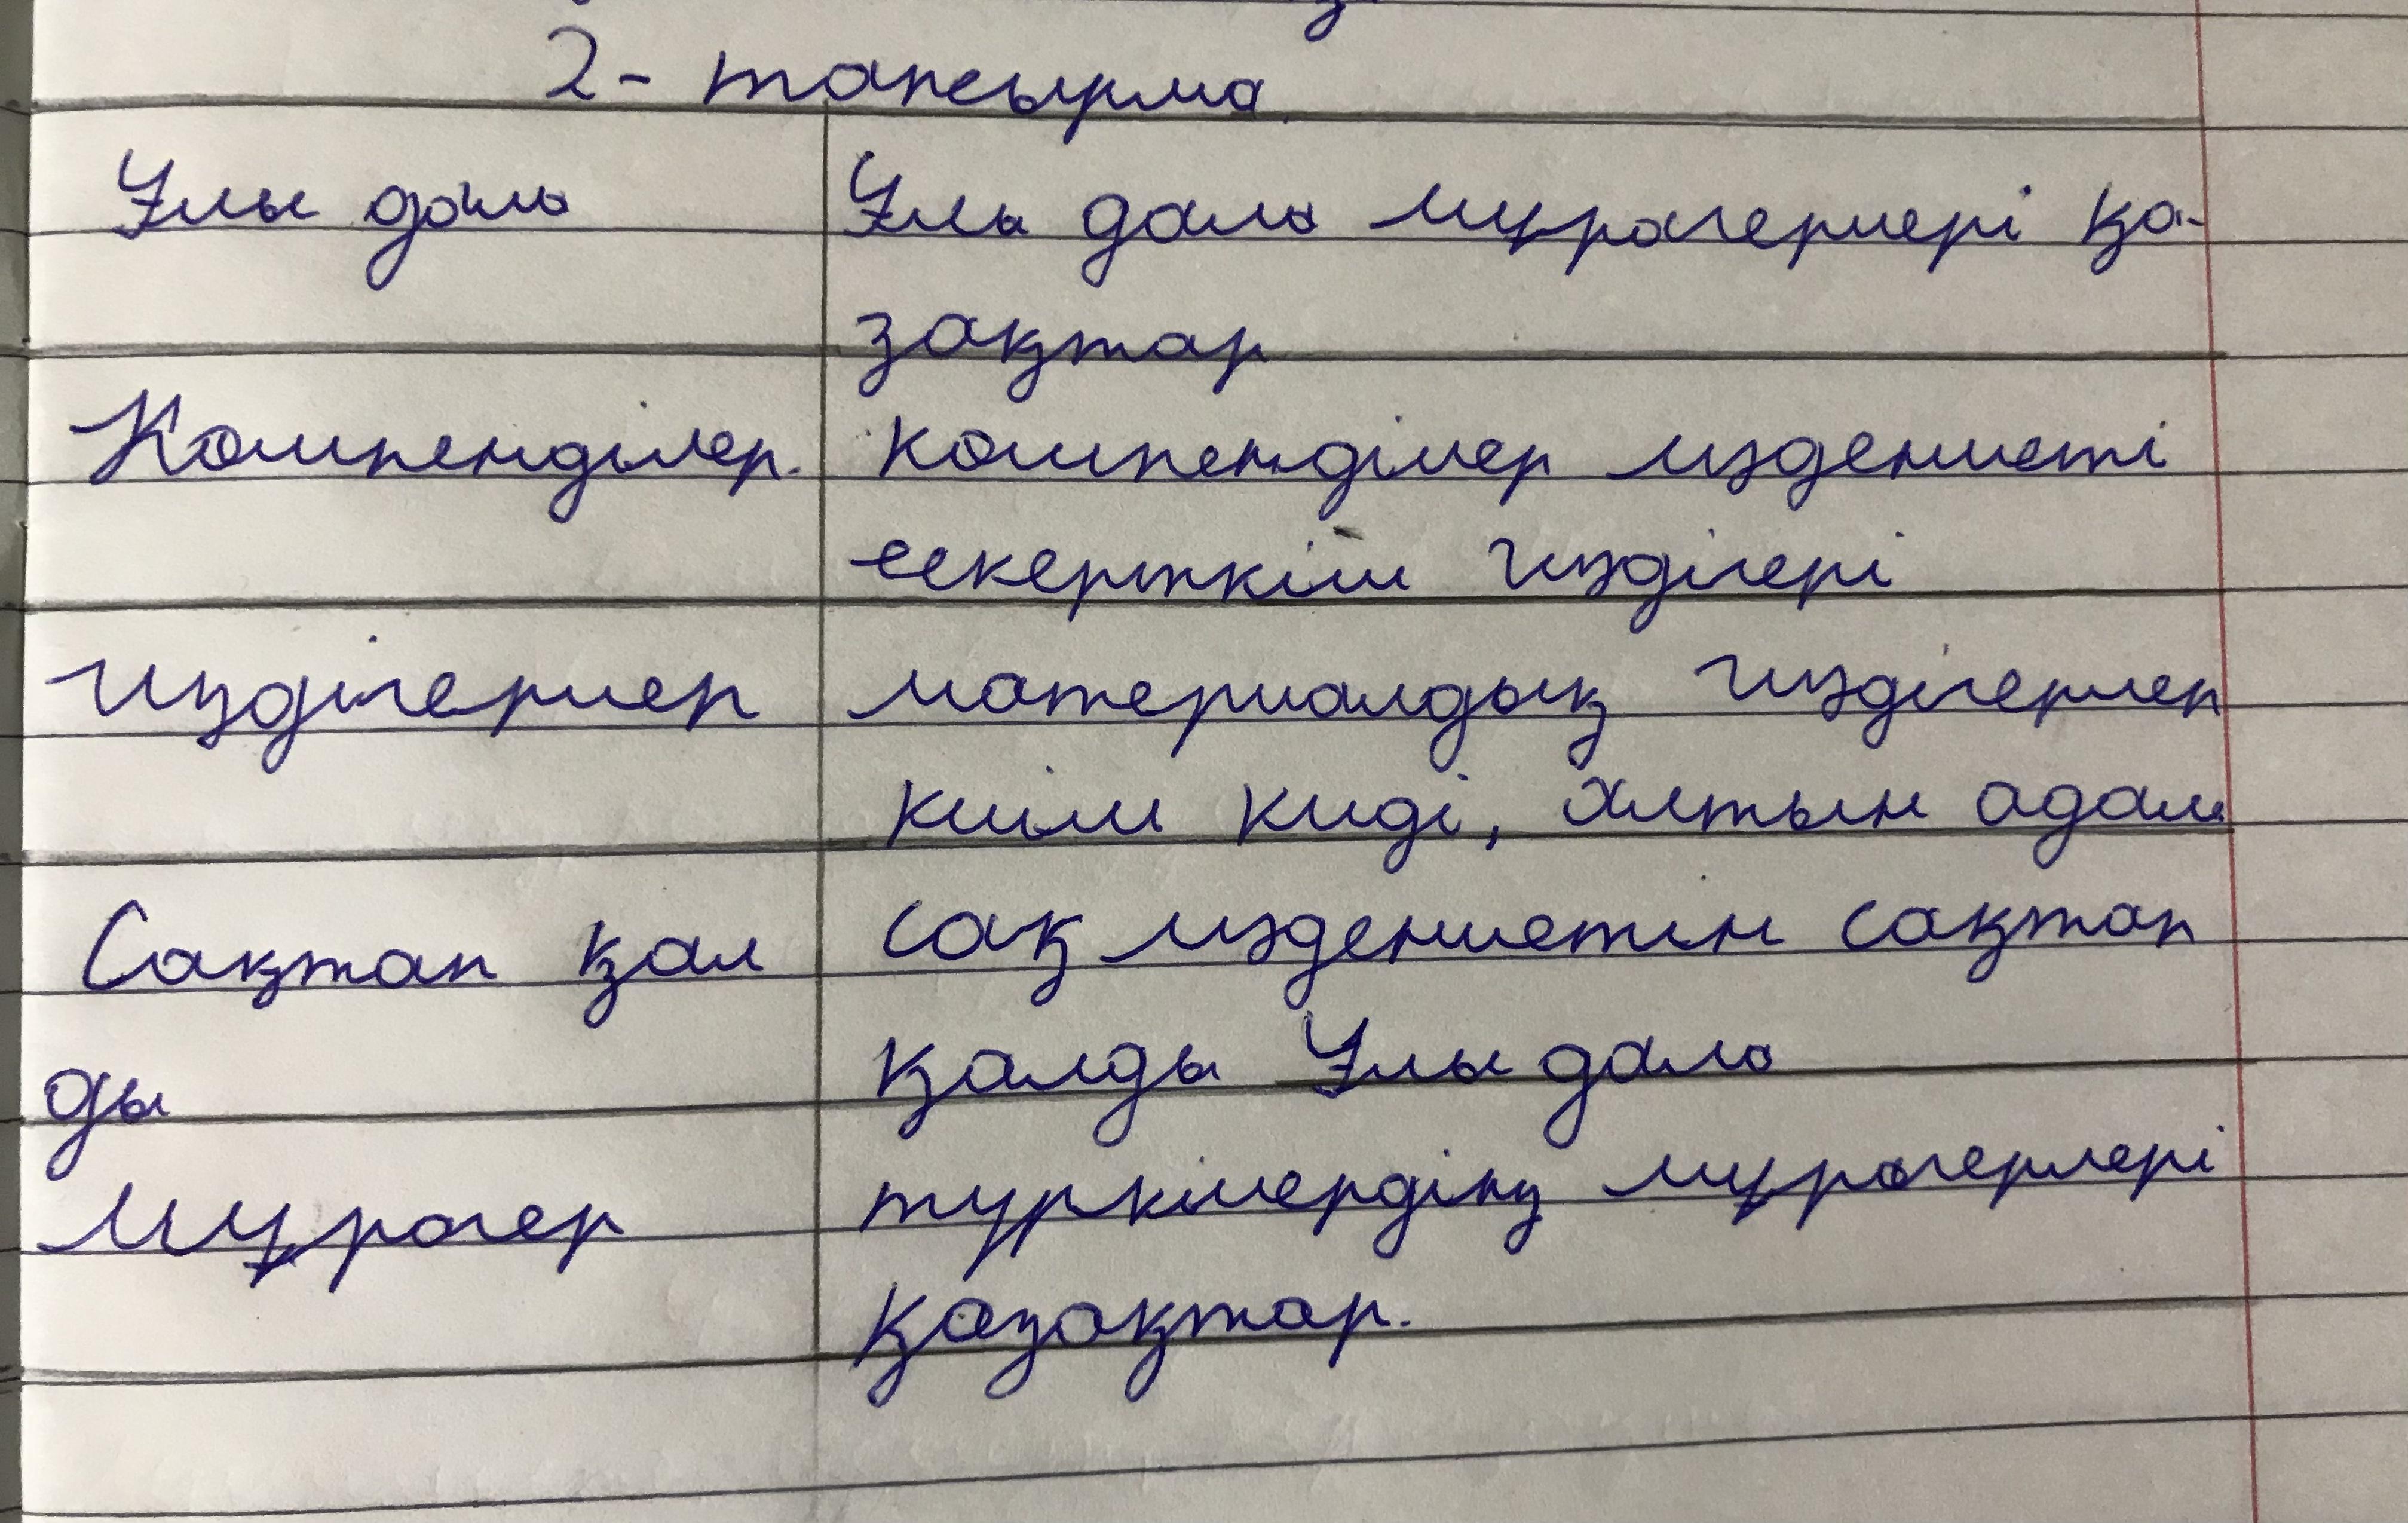 2- тапсырма
Ұлы дала
Ұлы дала мұрагерлері қа-
зақтар
Көшпенділер.
көшпенділер мәдениеті
ескерткіш
материалдық
киім киді, Алтын адам
Сақтап қал
ды
сақ мәдениетін сақтап
қалды Ұлы дала
Мұрагер
түркілердің мұрагерлері
қазақтар.